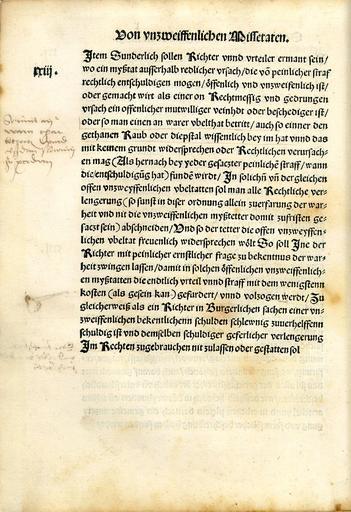 Von vnzweiffenlichen Missetaten.
xxiij.
Jtem Sunderlich sollen Richter vnnd vrteiler ermant sein/
wo ein mystat ausserhalb redlicher vrsach/die vō peinlicher straf
rechtlich entschuldigen mogen/öffenlich vnd vnzweifenlich ist/
oder gemacht wirt als einer on Rechtmessig vnd gedrungen
vrsach ein offenlicher mutwilliger veindt oder beschediger ist/
oder so man einen an warer vbelthat betrit/auch so einner den
gethanen Raub oder diepstal wissentlich bey im hat vnnd das
mit keinem grundt widersprechen oder Rechtlichen verursach-
en mag (Als hernach bey yeder gesatzter peinlichē straff/wann
die entschuldigūg hat) fundē wirdt/ Jn solichū vn der gleichen
offen vnzweyffenlichen vbeltatten sol man alle Rechtliche ver-
lengerung (so sunst in diser ordnung allein zuerfarung der war-
heit vnd nit die vnzweiffenlichen mystetter domit zufristen ge-
satzt sein) abschneiden/Vnd so der tetter die offen vnzweyffen-
lichen vbeltat freuenlich widersprechen wölt So soll Jne der
Richter mit peinlicher ernstlicher frage zu bekentnus der war-
heit zwingen lassen/damit in solchen öffenlichen vnzweiffenlich-
en mystatten die endtlich vrteil vnnd straff mit dem wenigstenn
kosten (als gesein kan) gefurdert/vnnd volzogen werdt/ Zu
gleicherweiß als ein Richter in Burgerlichen sachen einer vn-
zweiffenlichen bekentlichenn schulden schlewnig zuuerhelffenn
schuldig ist vnd demselben schuldiger geferlicher verlengerung
Jm Rechten zugebrauchen nit zulassen oder gestatten sol